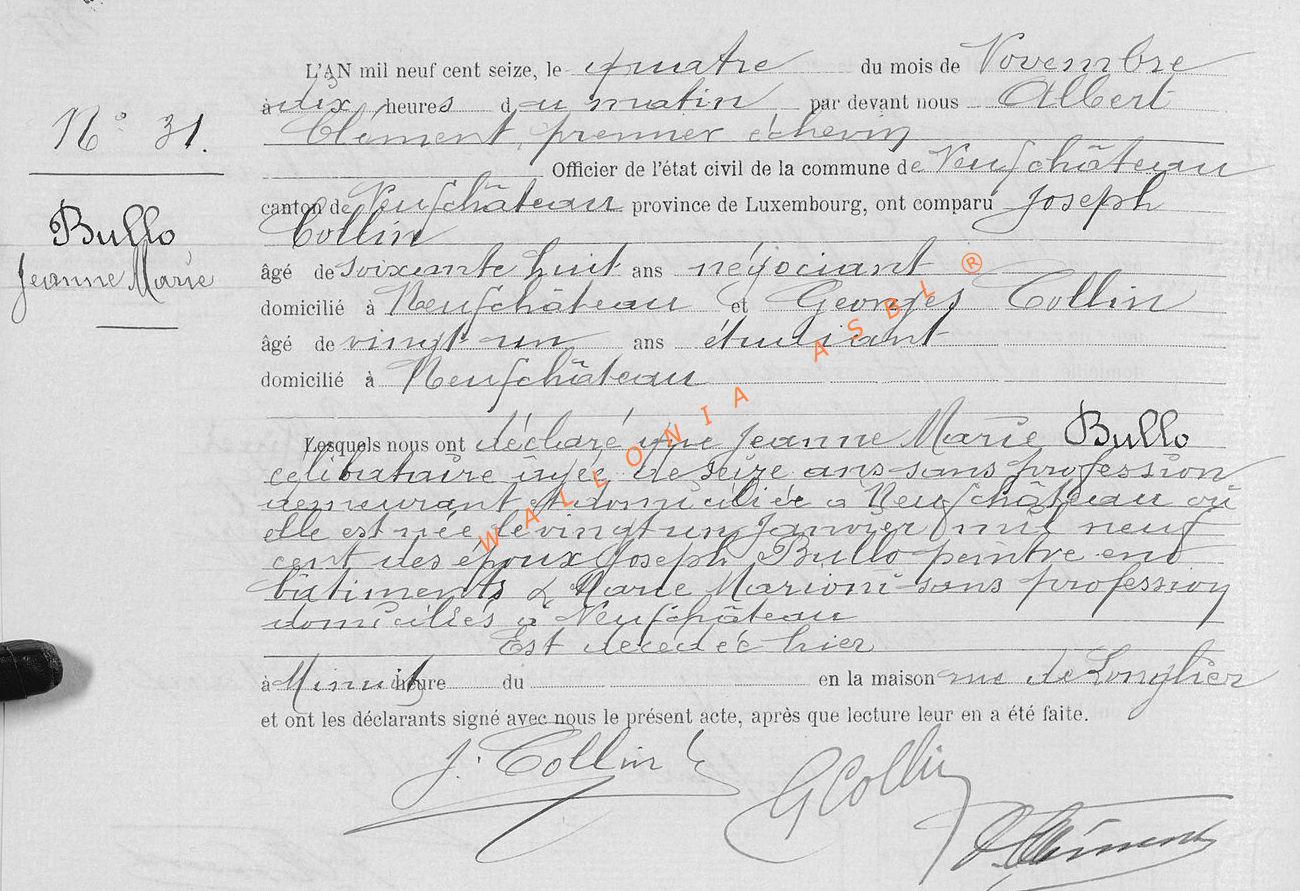 L'AN mil neuf cent seize, le quatre du mois de Novembre
à dix heures du matin par devant nous Albert
Clément, premier échevin
Officier de l'état civil de la commune de Neufchâteau
canton de Neufchâteau province de Luxembourg, ont comparu Joseph
Collin
âgé de soixante huit ans négociant
domicilié à Neufchâteau et Georges Collin
âgé de vingt un ans étudiant
domicilié à Neufchâteau
Lesquels nous ont déclaré que Jeanne Marie Bullo
célibataire âgée de seize ans sans profession
demeurant et domiciliée à Neufchâteau où
elle est née le vingt un Janvier mil neuf
cent des époux Joseph Bullo peintre en
bâtiments & Marie Marioni sans profession
domiciliés à Neufchâteau
Est décédée hier
à Minuit heure du en la maison rue de Longlier
et ont les déclarants signé avec nous le présent acte, après que lecture leur en a été faite.
J. Collin
G Collin
A. Clément
N° 31.
Bullo
Jeanne Marie
WALLONIA ASBL ®